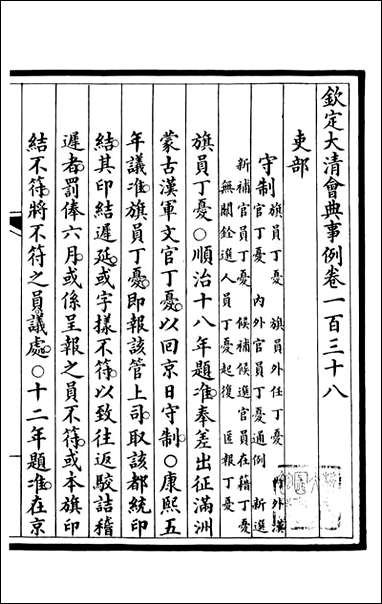 欽定大清會典事例卷一百三十八
吏部
守制
旗員丁憂　旗員外任丁憂　外漢
官丁憂　內外官員丁憂通例　新選
新補官員丁憂　候補候選官員在籍丁憂
無關銓選人員丁憂起復　匿報丁憂
旗員丁憂○順治十八年題准奉差出征滿洲
蒙古漢軍文官丁憂以回京日守制○康熙五
年議准旗員丁憂即報該管上司取該都統印
結其印結遲延或字樣不符以致往返駁詰稽
遲者罰俸六月或係呈報之員不符或本旗印
結不符將不符之員議處○十二年題准在京